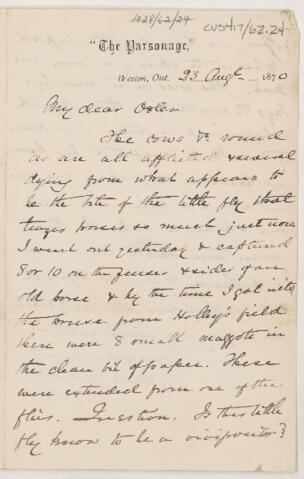 1828/62/24
CUS417/62.24
"The Parsonage,"
Weston, Ont. 23 Augt 1870
My dear Osler
The cows &c round
us are all afflicted & several
dying from what appears to
be the bite of the little fly that
teazes horses so much just now
I went out yesterday & captured
8 or 10 on the fences & sides of an
old horse & by the time I got into
the house from Holley's field
there were 8 small maggots in
the clean bit of paper. These
were extruded from one of the
flies. Question. Is this little
fly known to be a viviparitor?